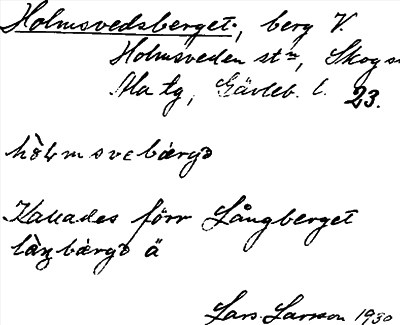 Holmsvedsberget, berg V.
Holmsveden stn, Skogs
Ala tg, Gävleb. l. 23.
Kallades förr Långberget
ä
Lars Larsson 1930